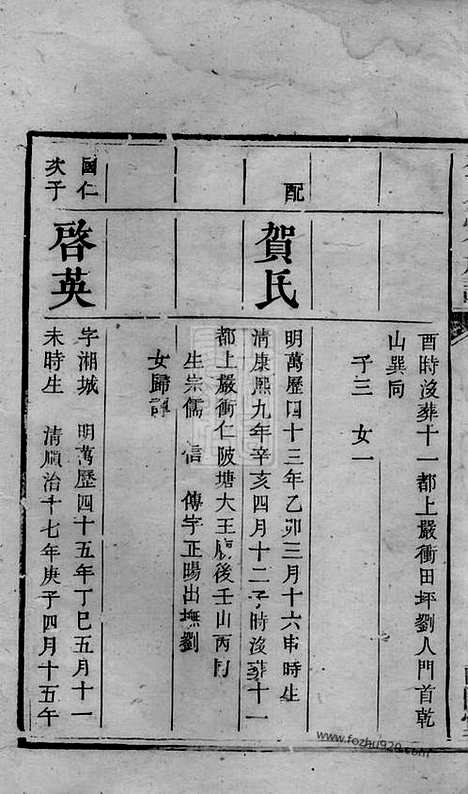 酉時沒葬十一都上嚴衝田坪劉人門首乾
山巽向
子三　女一
配
賀氏
明萬歷四十三年乙卯三月十六申時生
清康熙九年辛亥四月十二子時沒葬十一
都上嚴衝仁陂塘大王廟後壬山丙向
生崇儒　信　傳字正暘出撫劉
女歸譚
國仁
次子
啓英
字湘城　明萬歷四十五年丁巳五月十一
未時生　清順治十七年庚子四月十五午
www.fozhu920.com